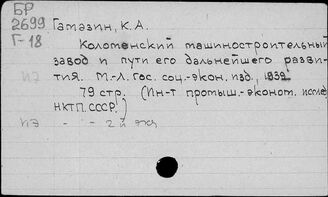 БР
2699
Г-18
Гамазин, К. А.
Коломенский машиностроительный
завод и пути его дальнейшего разви-
тия. М.-Л. Гос. соц.-экон. изд., 1932
79 стр. (Ин-т промыш.-эконом. исслед
НКТП СССР.)
ИЭ - - 2й экз